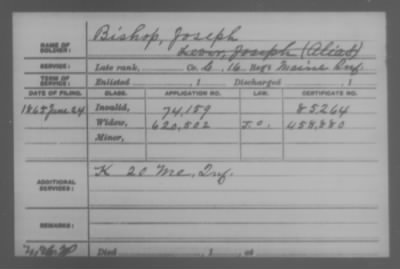 Bishop, Joseph
NAME OF SOLDIER: Joseph (Alias)
SERVICE: Late rank, Co. 16 Reg't Maine Inf.
TERM OF SERVICE: Enlisted , 1 Discharged , 1
DATE OF FILING. CLASS. APPLICATION NO. LAW. CERTIFICATE NO.
1865 June 24 Invalid, 74,159 85264
Widow, 620,502 458,880
Minor,
ADDITIONAL SERVICES: K 20 Me. Inf.
REMARKS:
Died , 1 , at